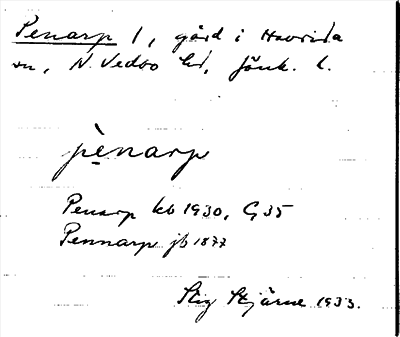 Penarp 1, gård i Haurida
sn, N. Vedbo hd, Jönk. l.
pènarp
Penarp kb 1930, G35
Pennarp jb 1877
Stig Stjärne 1933.